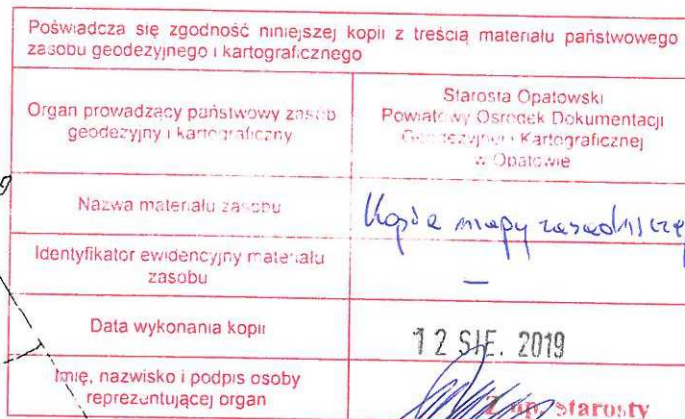 Poświadcza się zgodność niniejszej kopii z treścią materiału państwowego
zasobu geodezyjnego i kartograficznego
Organ prowadzący państwowy zasób
geodezyjny i kartograficzny
Starosta Opatowski
Powiatowy Ośrodek Dokumentacji
Geodezyjnej i Kartograficznej
w Opatowie
Nazwa materiału zasobu
Kopia mapy zasadniczej
Identyfikator ewidencyjny materiału
zasobu
—
Data wykonania kopii
12 SIE. 2019
Imię, nazwisko i podpis osoby
reprezentującej organ
Z up. starosty